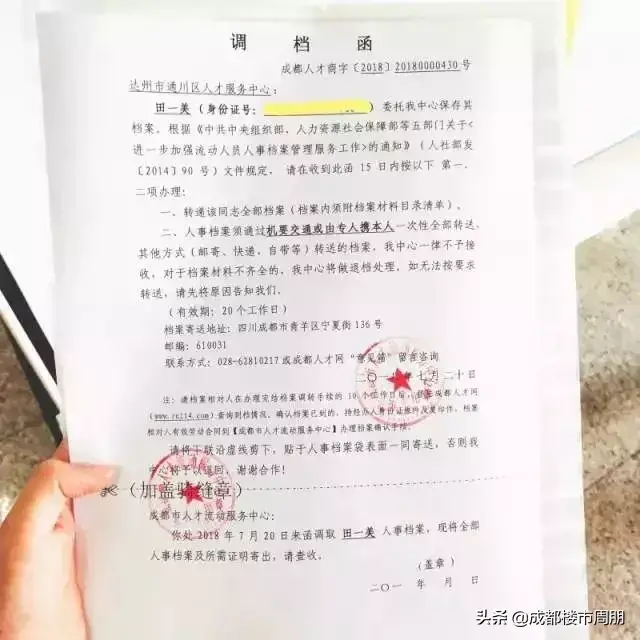 调 档 函
成都人才商字〔2018〕20180000430 号
达州市通川区人才服务中心：
田一美（身份证号： ）委托我中心保存其
档案。根据《中共中央组织部、人力资源社会保障部等五部门关于<
进一步加强流动人员人事档案管理服务工作>的通知》（人社部发
〔2014〕90 号）文件规定，请在收到此函 15 日内按以下 第一、
二项办理：
一、转递该同志全部档案（档案内须附档案材料目录清单）。
二、人事档案须通过机要交通或由专人携本人一次性全部转送，
其他方式（邮寄、快递、自带等）转送的档案，我中心一律不予接
收，对于档案材料不齐全的，我中心将做退档处理。如无法按要求
转送，请先将原因告知我们。
（有效期：20 个工作日）
档案寄送地址：四川成都市青羊区宁夏街 136 号
邮编：610031
联系方式：028-62810217 或成都人才网“意见箱”留言咨询
二〇一 年七月二十日
注：请档案相对人在办理完结档案调转手续的 10 个工作日后，登录成都人才网
（www.rc114.com）查询到档情况，确认档案已到的，持经办人身份证原件及复印件、档案
相对人有效劳动合同到【成都市人才流动服务中心】办理档案确认手续。
请将下联沿虚线剪下，贴于人事档案袋表面一同寄送，否则我
中心将予以退回，谢谢合作！
（加盖骑缝章）
成都市人才流动服务中心：
你处 2018 年 7 月 20 日来函调取 田一美 人事档案，现将全部
人事档案及所需证明寄出，请查收。
（盖章）
二〇一 年 月 日
头条 @成都楼市周朋